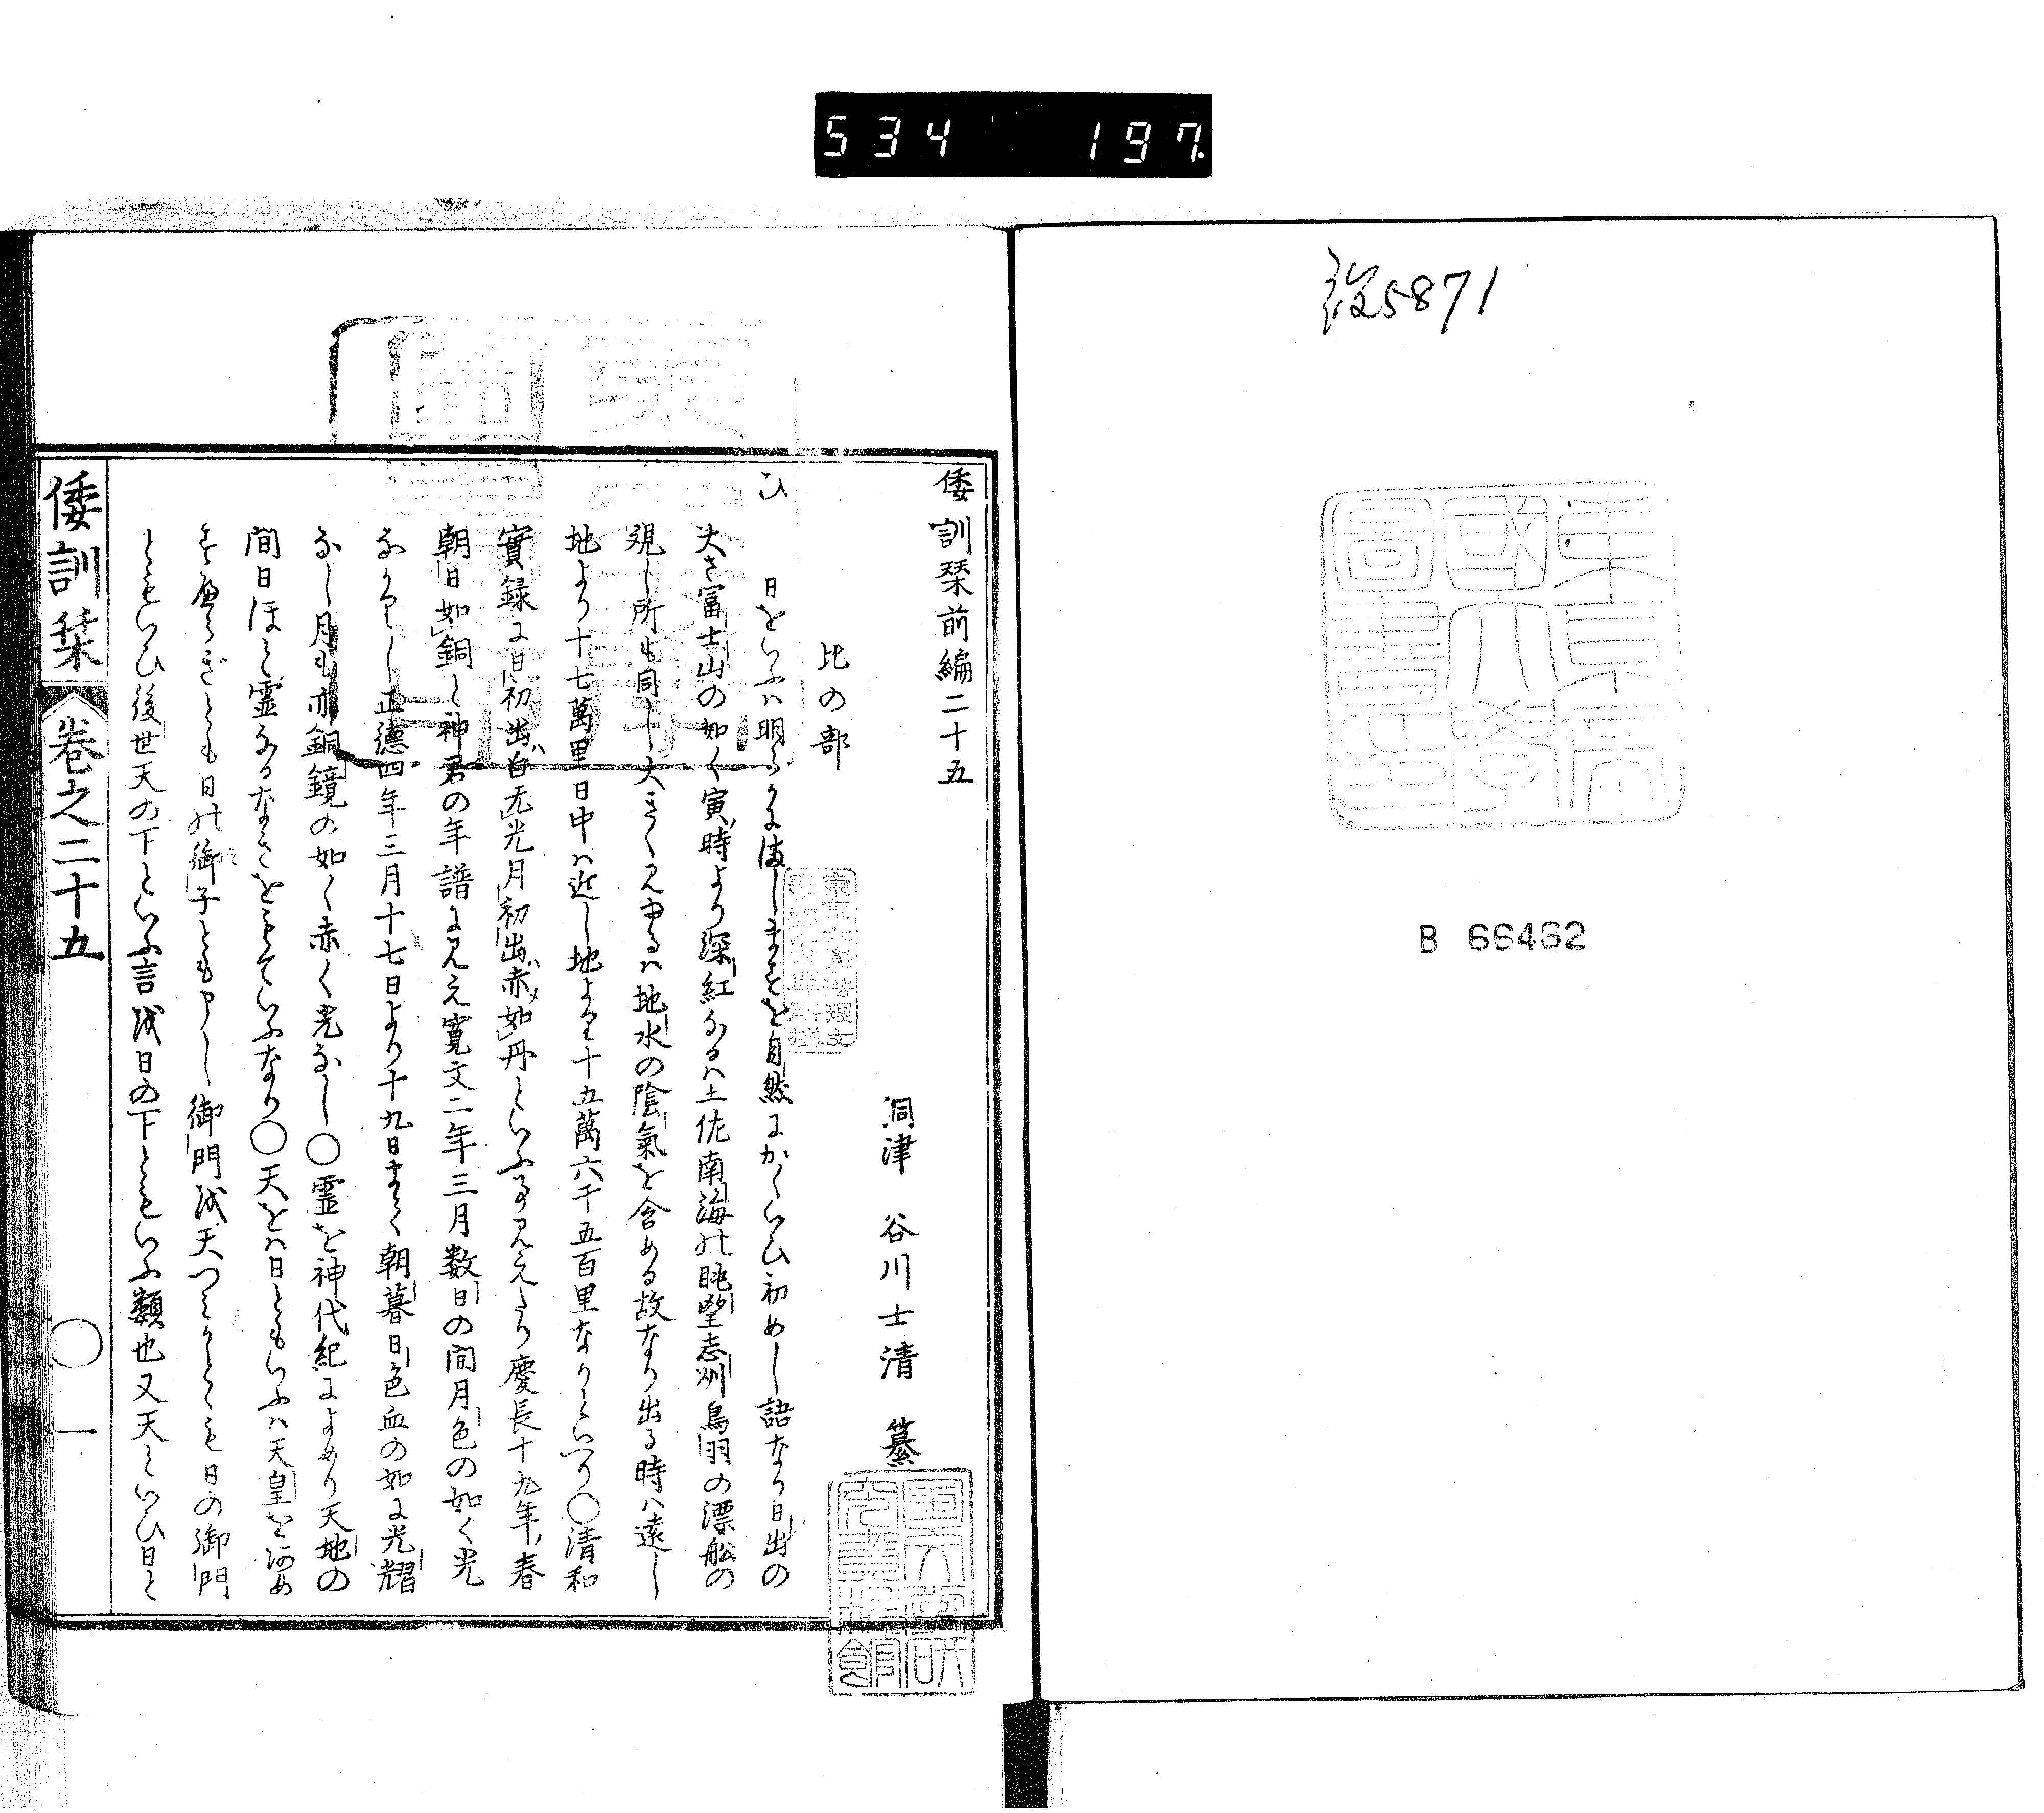 534 197
5871
東京帝國大學圖書印
B 66462
倭訓栞前編二十五
洞津 谷川士清 纂
比の部
ひ 日をいふハ明らかに しますを自然にかくいひ初めし語なり日出の
大さ富士山の如く寅時より深紅なるハ土佐南海の眺望志州鳥羽の漂船の
視し所も同し大きく見ゆるハ地水の陰氣を含める故なり出る時ハ遠し
地より十七萬里日中ハ近し地より十五萬六千五百里なりといへり○清和
實録に日初出白无光月初出赤如丹といふ事見えたり慶長十九年春
朝日如銅と神君の年譜に見え寛文二年三月数日の間月色の如く光
なかりし正德四年三月十七日より十九日まて朝暮日色血の如に光耀
なし月も亦銅鏡の如く赤く光なし○霊を神代紀によめり天地の
間日ほと霊なるなきをもていふなり○天をハ日ともいふハ天皇をあめ
すへらきとも日の御子とも申し御門を天つみかとゝも日の御門
ともいひ後世天の下といふ言を日の下ともいふ類也又天といひ日と
倭訓栞 巻之二十五 ○ 一